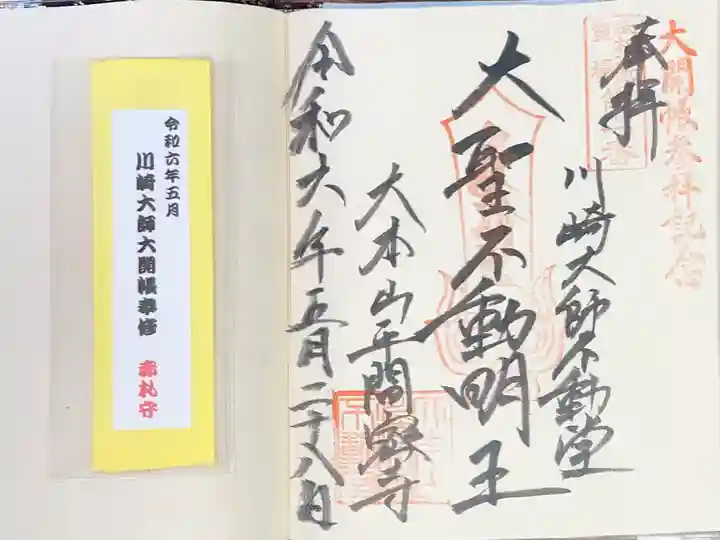 大開帳参拝記念
奉拝
川崎大師不動堂
大聖不動明王
大本山平間寺
令和六年五月二十八日
令和六年五月
川崎大師大開帳奉修 赤札守